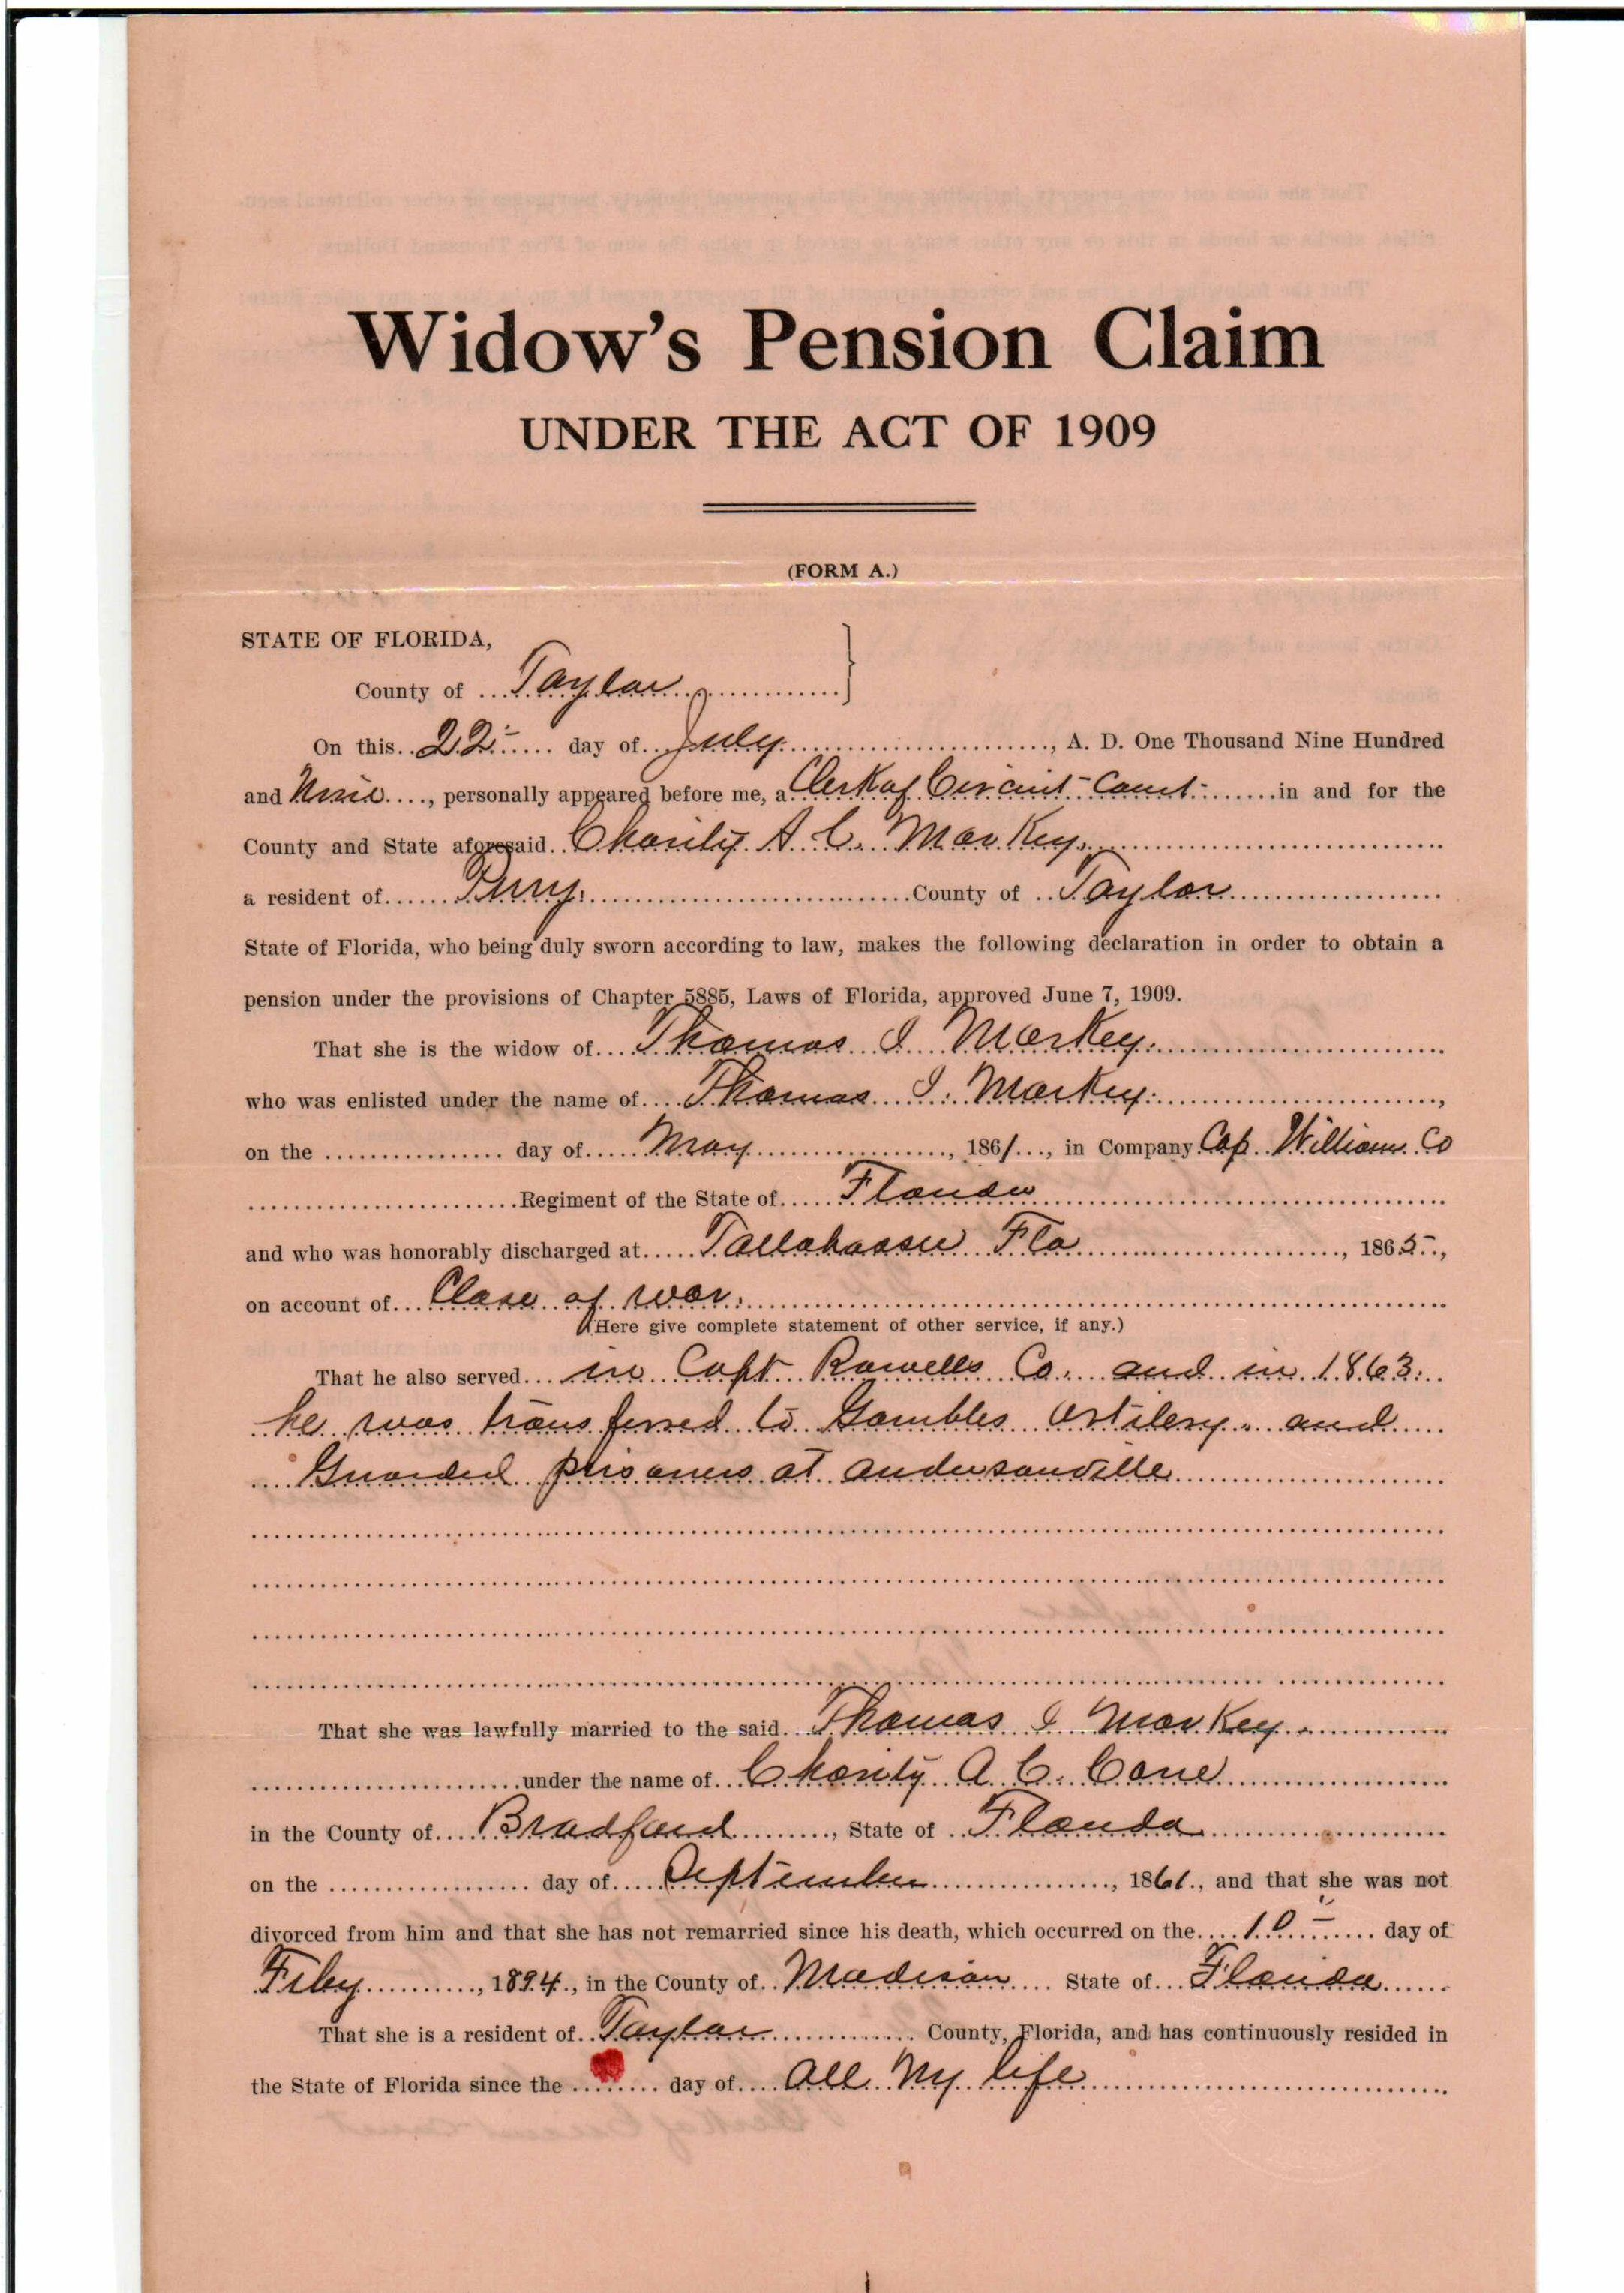 Widow's Pension Claim
UNDER THE ACT OF 1909
(FORM A.)
STATE OF FLORIDA,
County of Taylor
On this 22 day of July, A. D. One Thousand Nine Hundred
and Nine, personally appeared before me, a Clerk of Circuit Court in and for the
County and State aforesaid Charity A. C. MarKey
a resident of Perry County of Taylor
State of Florida, who being duly sworn according to law, makes the following declaration in order to obtain a
pension under the provisions of Chapter 5885, Laws of Florida, approved June 7, 1909.
That she is the widow of Thomas I MarKey
who was enlisted under the name of Thomas I. MarKey,
on the day of May, 1861, in Company Cap. Williams Co
Regiment of the State of Florida
and who was honorably discharged at Tallahassee Fla, 1865,
on account of Close of war.
(Here give complete statement of other service, if any.)
That he also served in Capt Rowells Co. and in 1863.
he was transferred to Gambles Artilery. and
Guarded prisoners at andersonville
That she was lawfully married to the said Thomas I MarKey
under the name of Charity A. C. Cone
in the County of Bradford, State of Florida
on the day of September, 1861, and that she was not
divorced from him and that she has not remarried since his death, which occurred on the 10 day of
Feby, 1894, in the County of Madison State of Florida
That she is a resident of Taylor County, Florida, and has continuously resided in
the State of Florida since the day of All My life